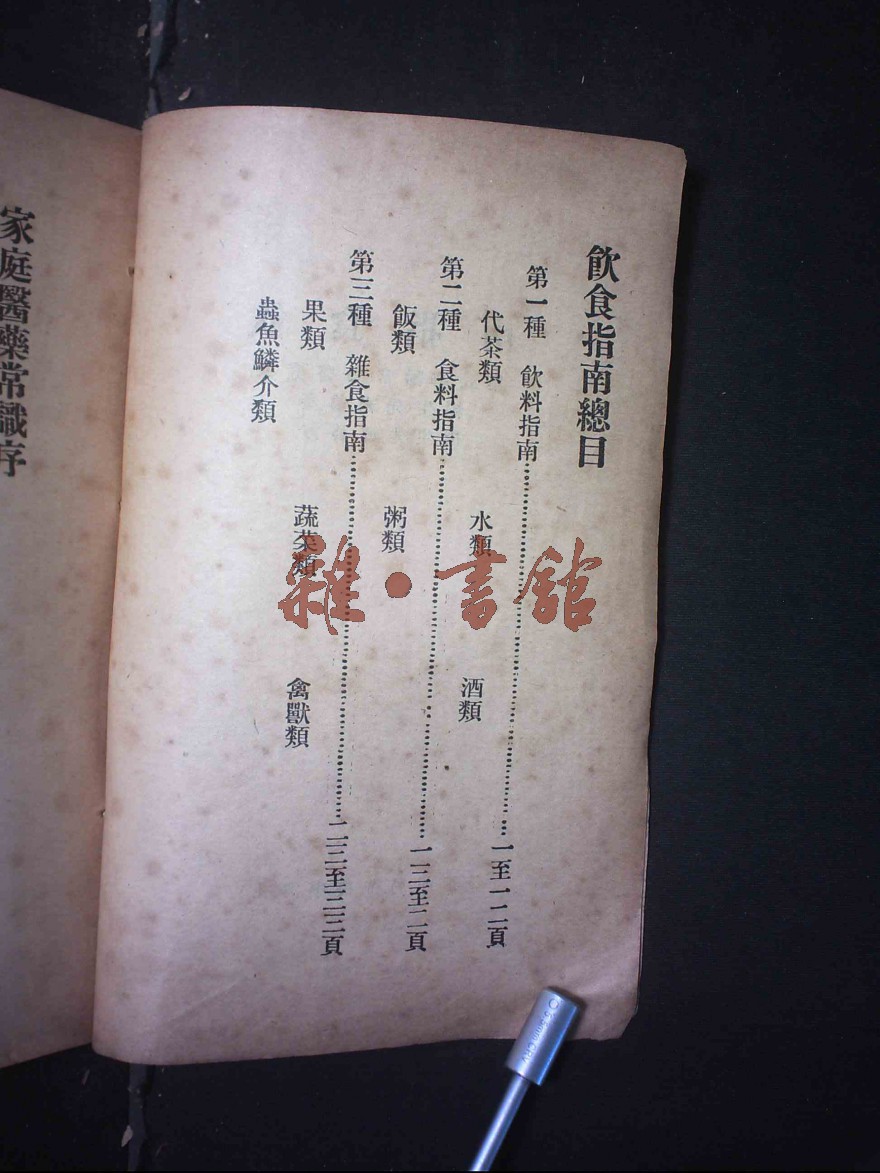 飲食指南總目
第一種　飲料指南……一至一二頁
代茶類　水類　酒類
第二種　食料指南……一三至二頁
飯類　粥類
第三種　雜食指南……二三至三三頁
果類　蔬菜類　禽獸類
蟲魚鱗介類
家庭醫藥常識序
雜·書館